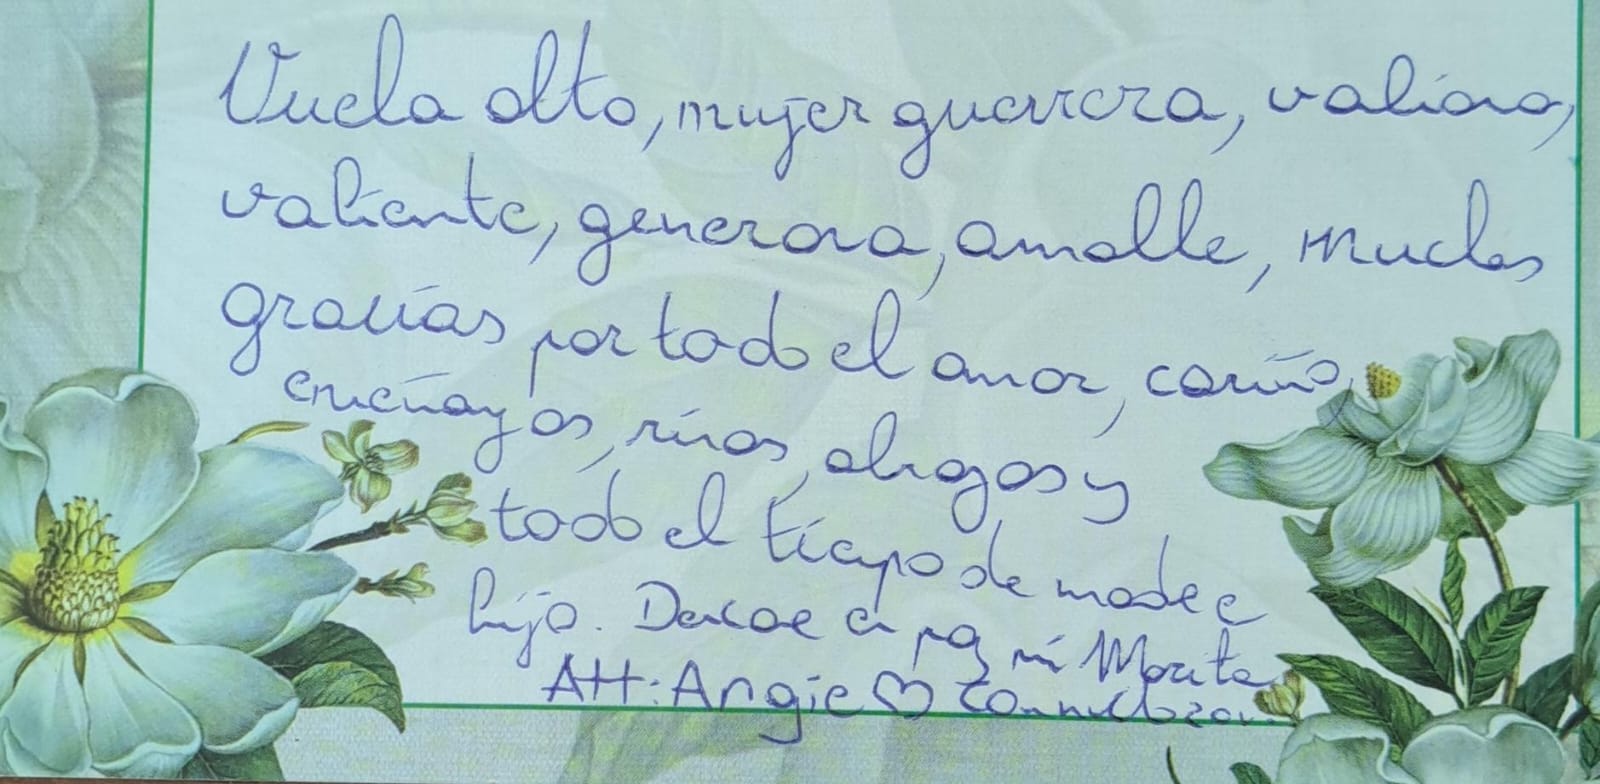 Vuela alto, mujer guerrera, valiosa,
valiente, generosa, amable, muchas
gracias por todo el amor, cariño,
enseñayos, risas, abrazos y
todo el tiempo de madre e
hija. Descae en paz mi Morita
Att: Angie ♡